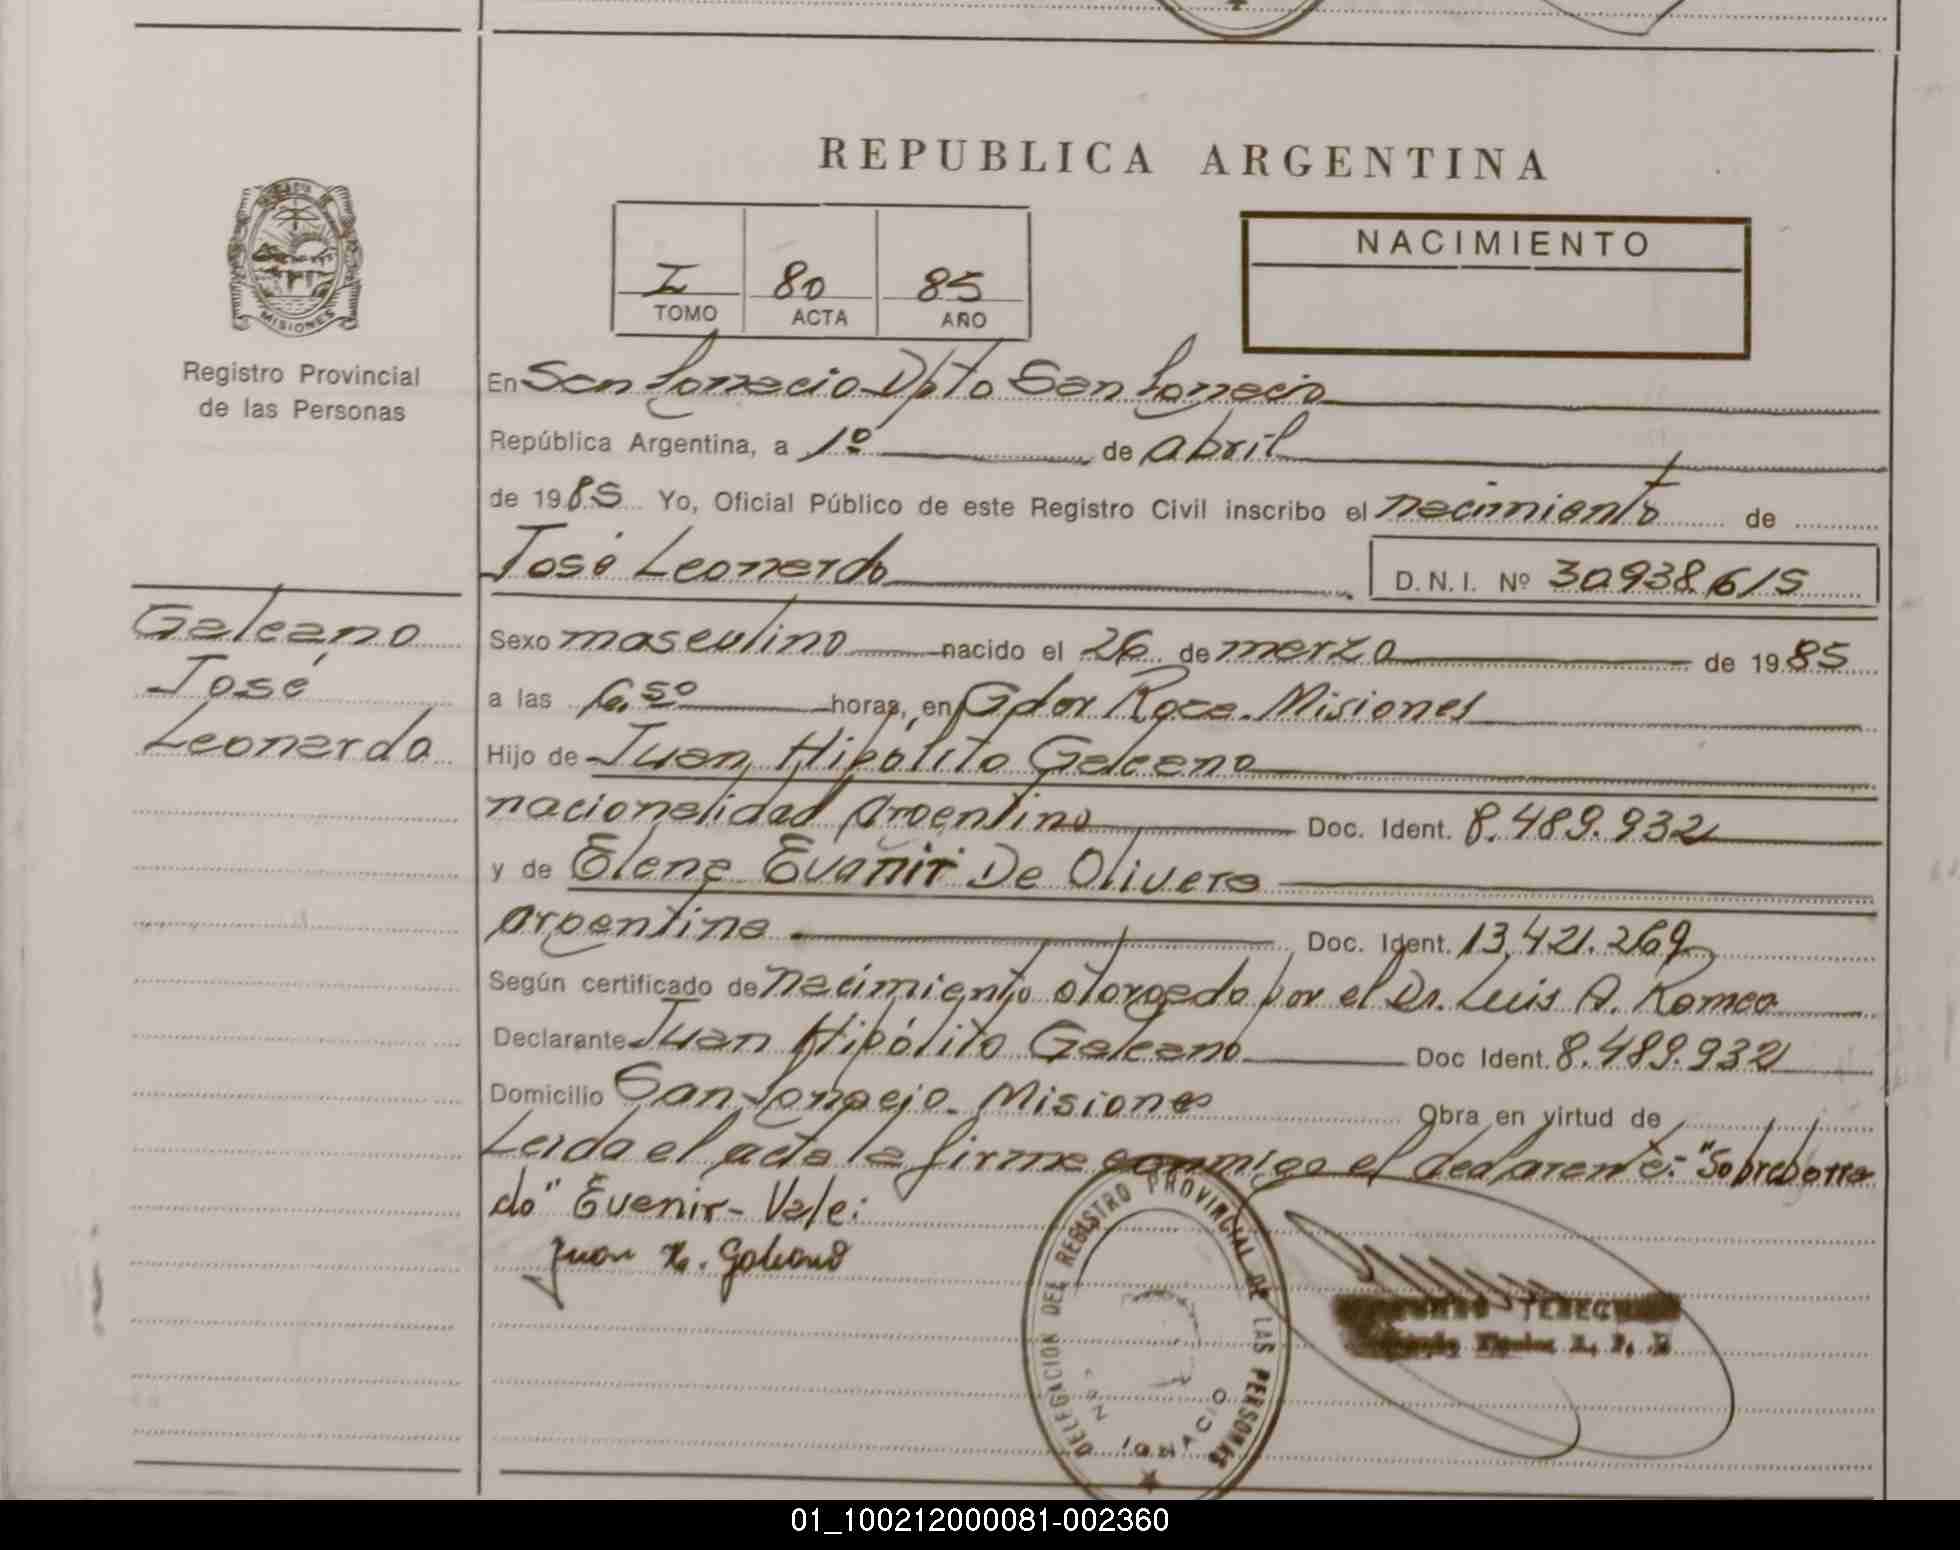 REPUBLICA ARGENTINA
I 80 85
TOMO ACTA AÑO
NACIMIENTO
MISIONES
Registro Provincial
de las Personas
En San Ignacio Dpto San Ignacio
República Argentina, a 1º de abril
de 1985 Yo, Oficial Público de este Registro Civil inscribo el nacimiento de
José Leonardo D.N.I. Nº 30.938.615
Galeano
José
Leonardo
Sexo masculino nacido el 26 de marzo de 1985
a las 6,50 horas, en Gdor Roca. Misiones
Hijo de Juan Hipólito Galeano
nacionalidad argentino Doc. Ident. 8.489.932
y de Elena Evanir De Olivera
argentina Doc. Ident. 13.421.269
Según certificado de nacimiento otorgado por el Dr. Luis A. Romeo
Declarante Juan Hipólito Galeano Doc Ident. 8.489.932
Domicilio San Ignacio. Misiones Obra en virtud de
Leida el acta la firma conmigo el declarante:- "Sobreborra
do" Evanir- Vale:
Juan H. Galeano
DELEGACION DEL REGISTRO PROVINCIAL DE LAS PERSONAS
IGNACIO
01_100212000081-002360